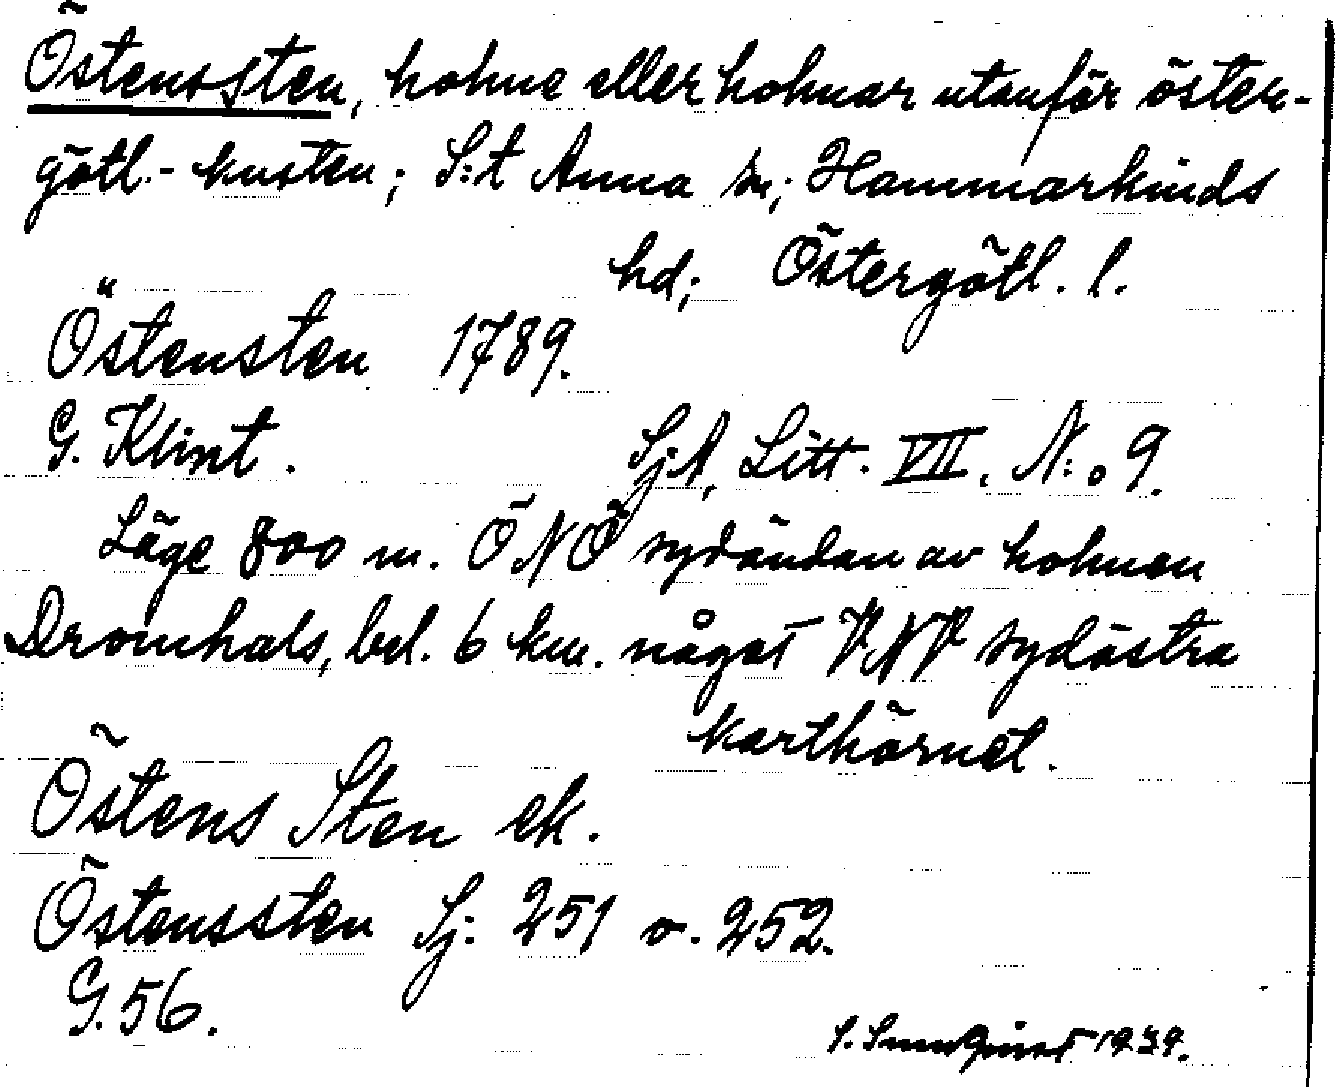 Östenssten, holme eller holmar utanför öster-
götl.-kusten; S:t Anna sn; Hammarkinds
hd; Östergötl. l.
Östensten 1789.
G. Klint. Sj.A, Litt. VII. N:o 9.
Läge 800 m. ÖNÖ sydändan av holmen
Dromhals, bel. 6 km. något VNV sydöstra
karthörnet.
Östens Sten ek.
Östenssten Sj: 251 o. 252.
G. 56.
1939.